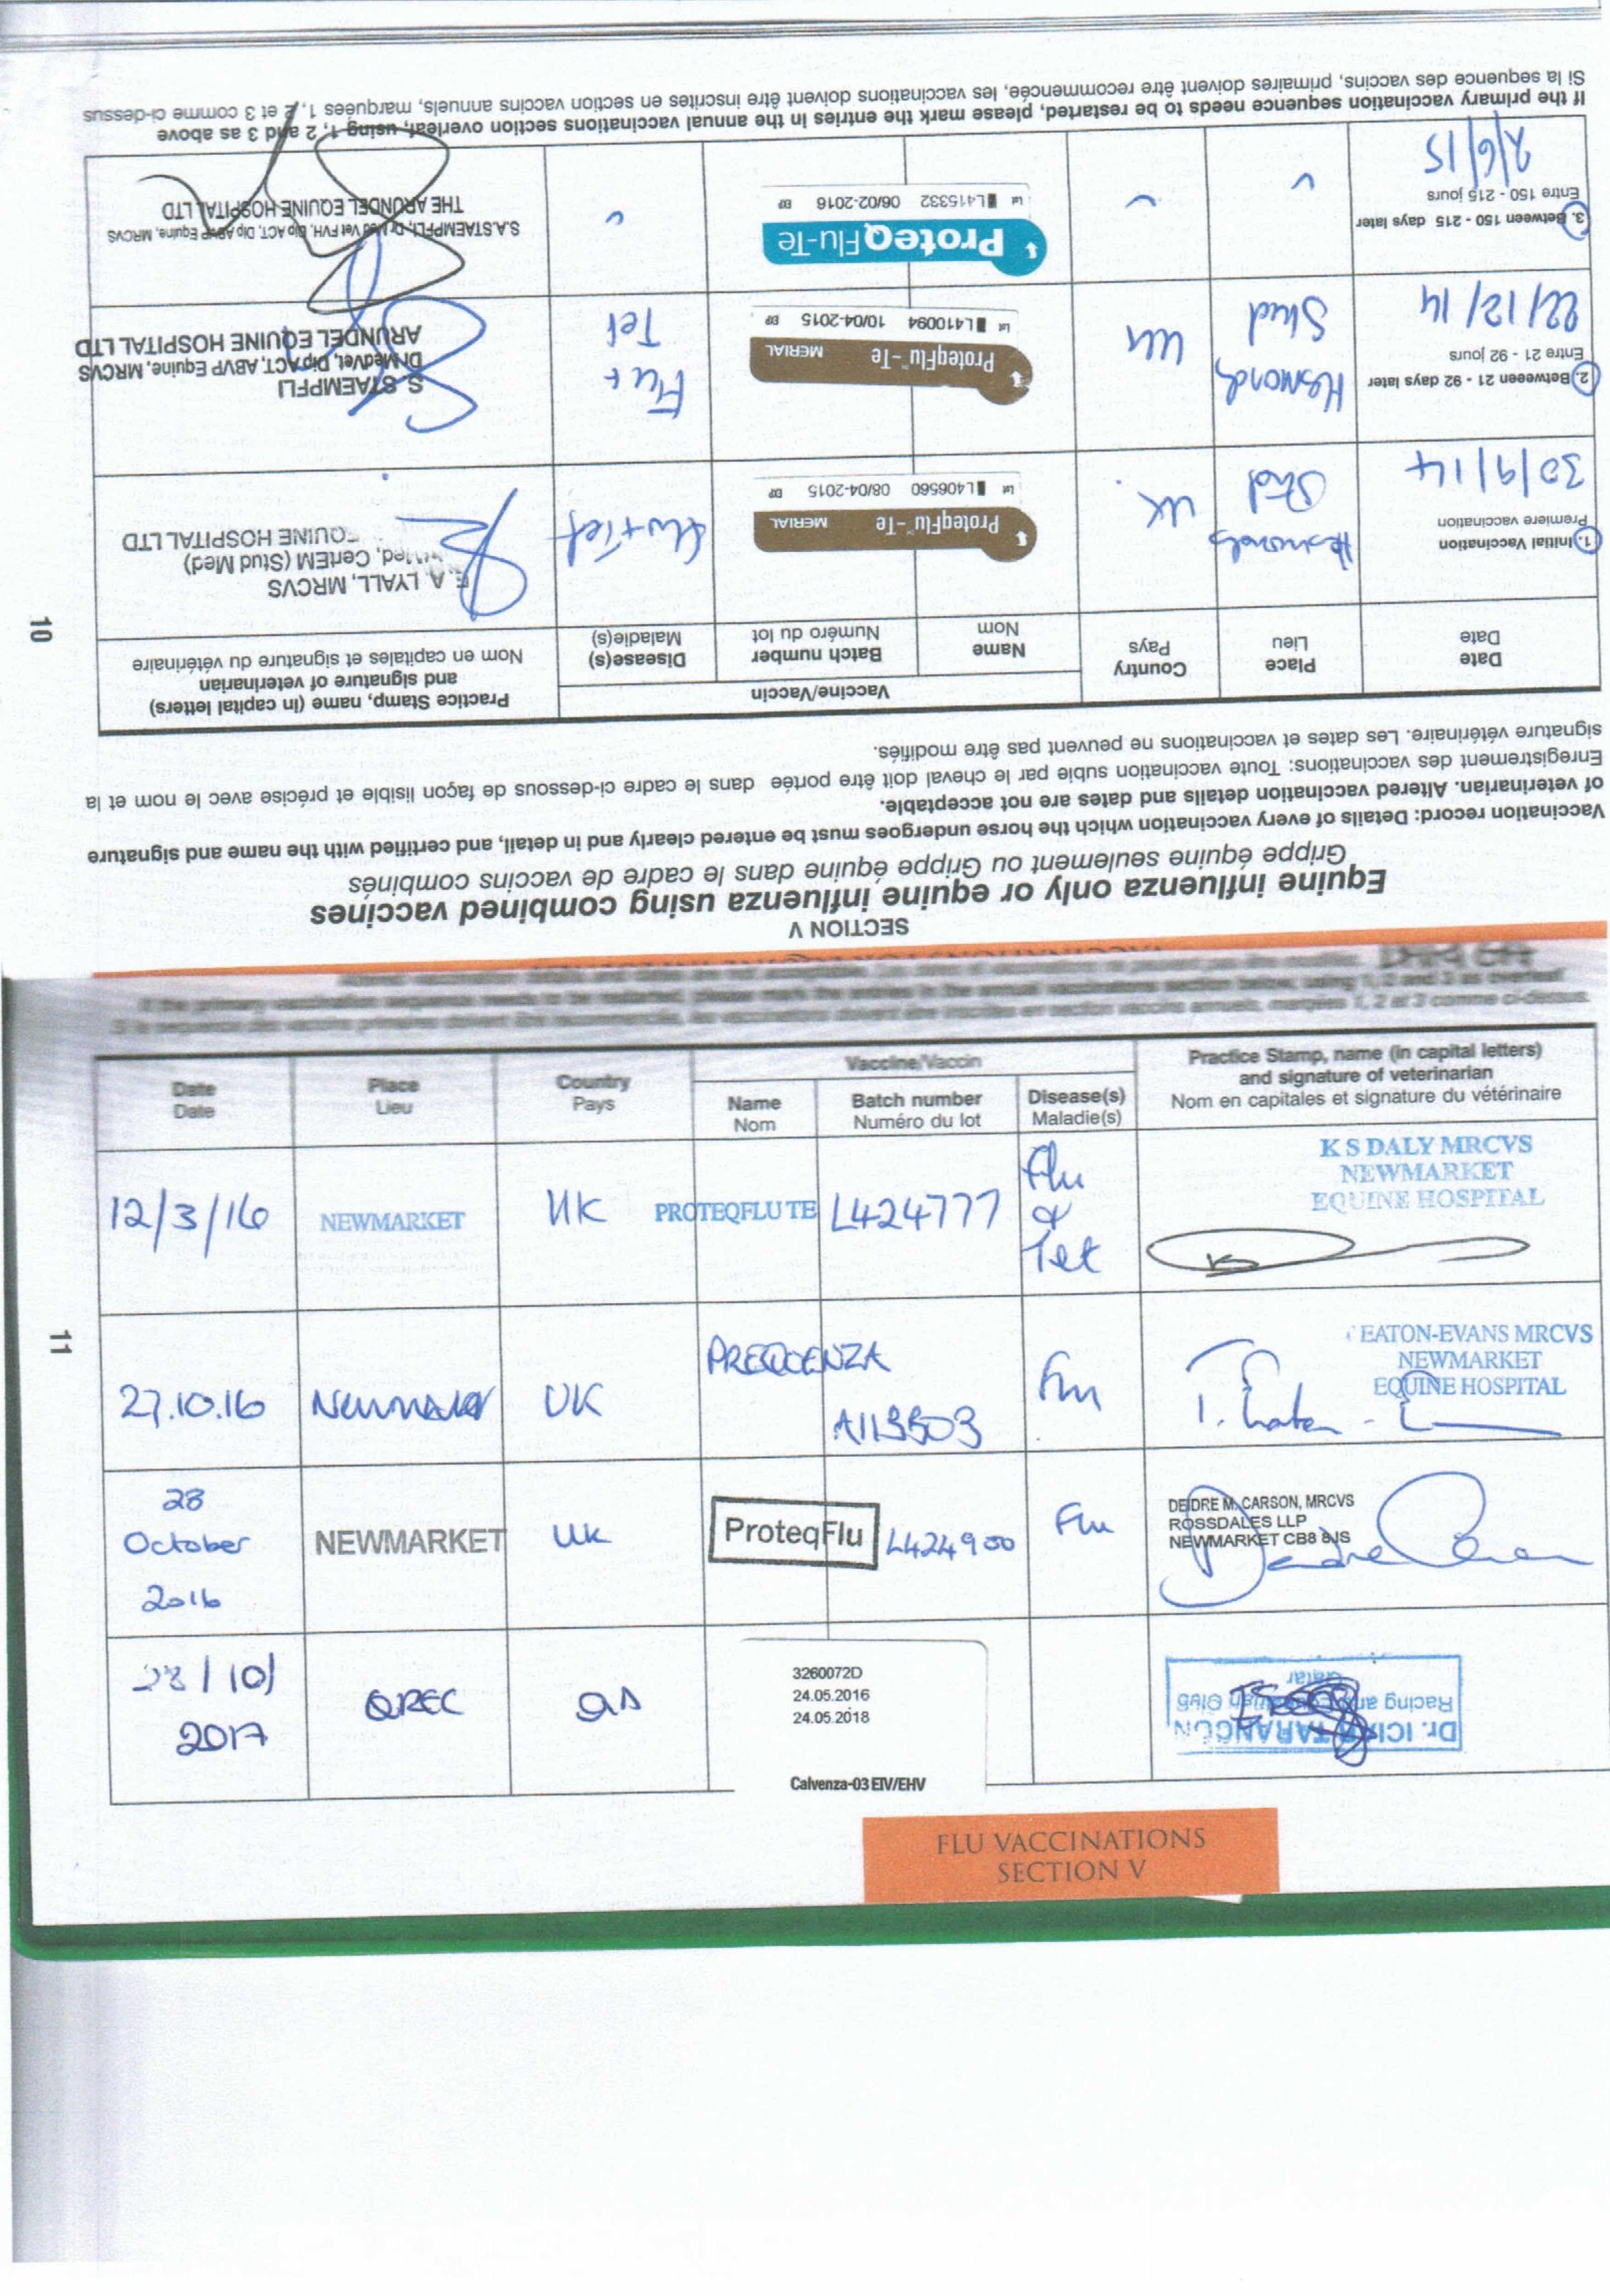 10
SECTION V
Equine influenza only or equine influenza using combined vaccines
Grippe équine seulement ou Grippe équine dans le cadre de vaccins combinés
Vaccination record: Details of every vaccination which the horse undergoes must be entered clearly and in detail, and certified with the name and signature
of veterinarian. Altered vaccination details and dates are not acceptable.
Enregistrement des vaccinations: Toute vaccination subie par le cheval doit être portée dans le cadre ci-dessous de façon lisible et précise avec le nom et la
signature vétérinaire. Les dates et vaccinations ne peuvent pas être modifiés.
Date
Date
Place
Lieu
Country
Pays
Vaccine/Vaccin
Name
Nom
Batch number
Numéro du lot
Disease(s)
Maladie(s)
Practice Stamp, name (in capital letters)
and signature of veterinarian
Nom en capitales et signature du vétérinaire
1. Initial Vaccination
Premiere vaccination
30/9/14
Stud
UK
ProteqFlu™-Te MERIAL
Lot L406560 08/04-2015 EXP
Flu+Tet
E. A. LYALL, MRCVS
CertEM (Stud Med)
EQUINE HOSPITAL LTD
2. Betweeen 21 - 92 days later
Entre 21 - 92 jours
22/12/14
Stud
UK
ProteqFlu™-Te MERIAL
Lot L410094 10/04-2015 EXP
Flu +
Tet
S. STAEMPFLI
Dr MedVet, Dip ACT, ABVP Equine, MRCVS
ARUNDEL EQUINE HOSPITAL LTD
3. Between 150 - 215 days later
Entre 150 - 215 jours
2/6/15
"
"
ProteqFlu-Te
Lot L415332 06/02-2016 EXP
"
S.A.STAEMPFLI, Dr Med Vet FVH, Dip ACT, Dip ABVP Equine, MRCVS
THE ARUNDEL EQUINE HOSPITAL LTD
If the primary vaccination sequence needs to be restarted, please mark the entries in the annual vaccinations section overleaf, using 1, 2 and 3 as above
Si la sequence des vaccins, primaires doivent être recommencée, les vaccinations doivent être inscrites en section vaccins annuels, marquées 1, 2 et 3 comme ci-dessus
If the primary vaccination sequence needs to be restarted, please mark the entries in the annual vaccinations section below, using 1, 2 and 3 as overleaf
Si la sequence des vaccins primaires doivent être recommencée, les vaccinations doivent être inscrites en section vaccins annuels, marquées 1, 2 et 3 comme ci-dessus.
11
Date
Date
Place
Lieu
Country
Pays
Vaccine/Vaccin
Name
Nom
Batch number
Numéro du lot
Disease(s)
Maladie(s)
Practice Stamp, name (in capital letters)
and signature of veterinarian
Nom en capitales et signature du vétérinaire
12/3/16
NEWMARKET
UK
PROTEQFLU TE
L424777
Flu
&
Tet
K S DALY MRCVS
NEWMARKET
EQUINE HOSPITAL
27.10.16
Newmarket
UK
PREQUENZA
A113B03
Flu
EATON-EVANS MRCVS
NEWMARKET
EQUINE HOSPITAL
T. Eaton-E
28
October
2016
NEWMARKET
UK
ProteqFlu
L424900
Flu
DEIDRE M. CARSON, MRCVS
ROSSDALES LLP
NEWMARKET CB8 8JS
28/10/
2017
QREC
QA
3260072D
24.05.2016
24.05.2018
Calvenza-03 EIV/EHV
Dr. ICIAR TARANCÓN
Racing and Equestrian Club
Qatar
FLU VACCINATIONS
SECTION V